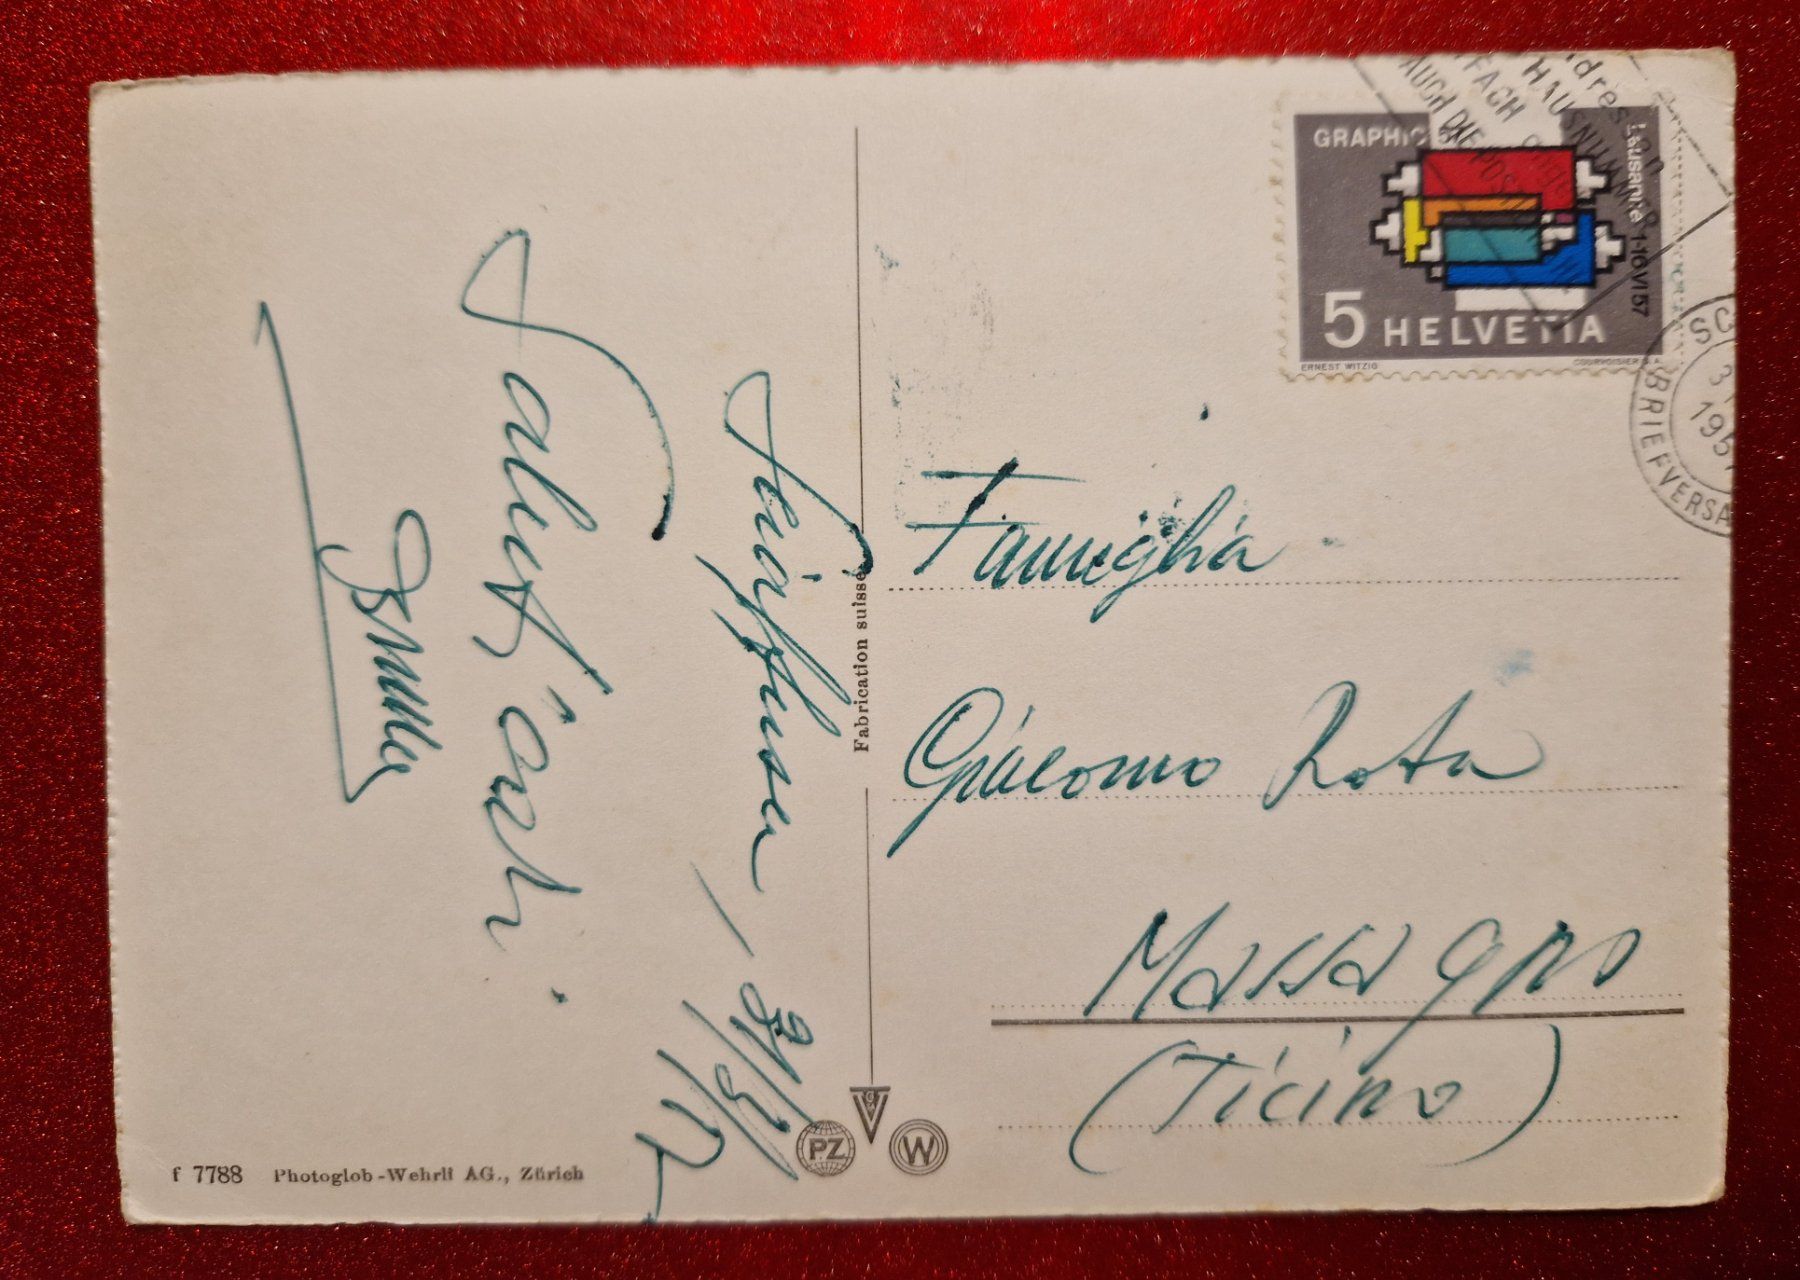 Sciaffusa, 31/5/57
Saluti cordi.
Famiglia
Giacomo Rota
Massagno
(Ticino)
GRAPHIC
Lausanne 1-16 VI 57
5 HELVETIA
ERNEST WITZIG
COURVOISIER S.A.
HAUSNUM
FACH
AUCH DIE POS
SC
3
195
BRIEFVERSA
Fabrication suisse
PZ
W
f 7788 Photoglob-Wehrli AG., Zürich